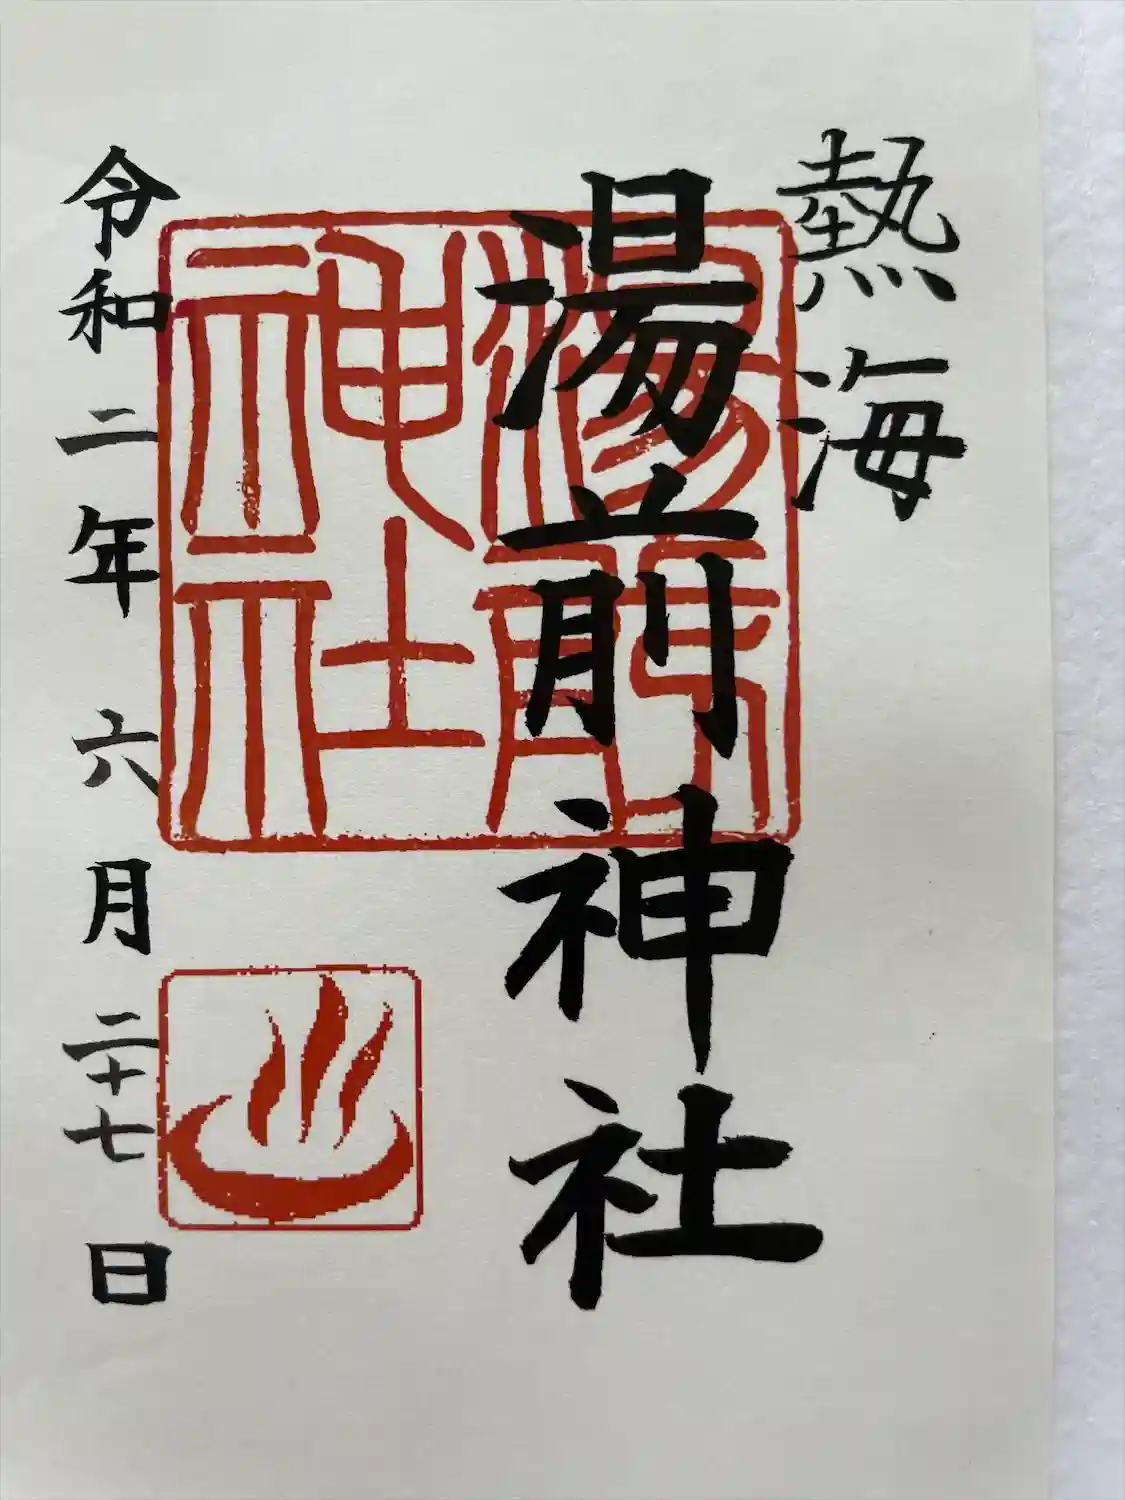 熱海
湯前神社
湯前
神社
令和二年六月二十七日